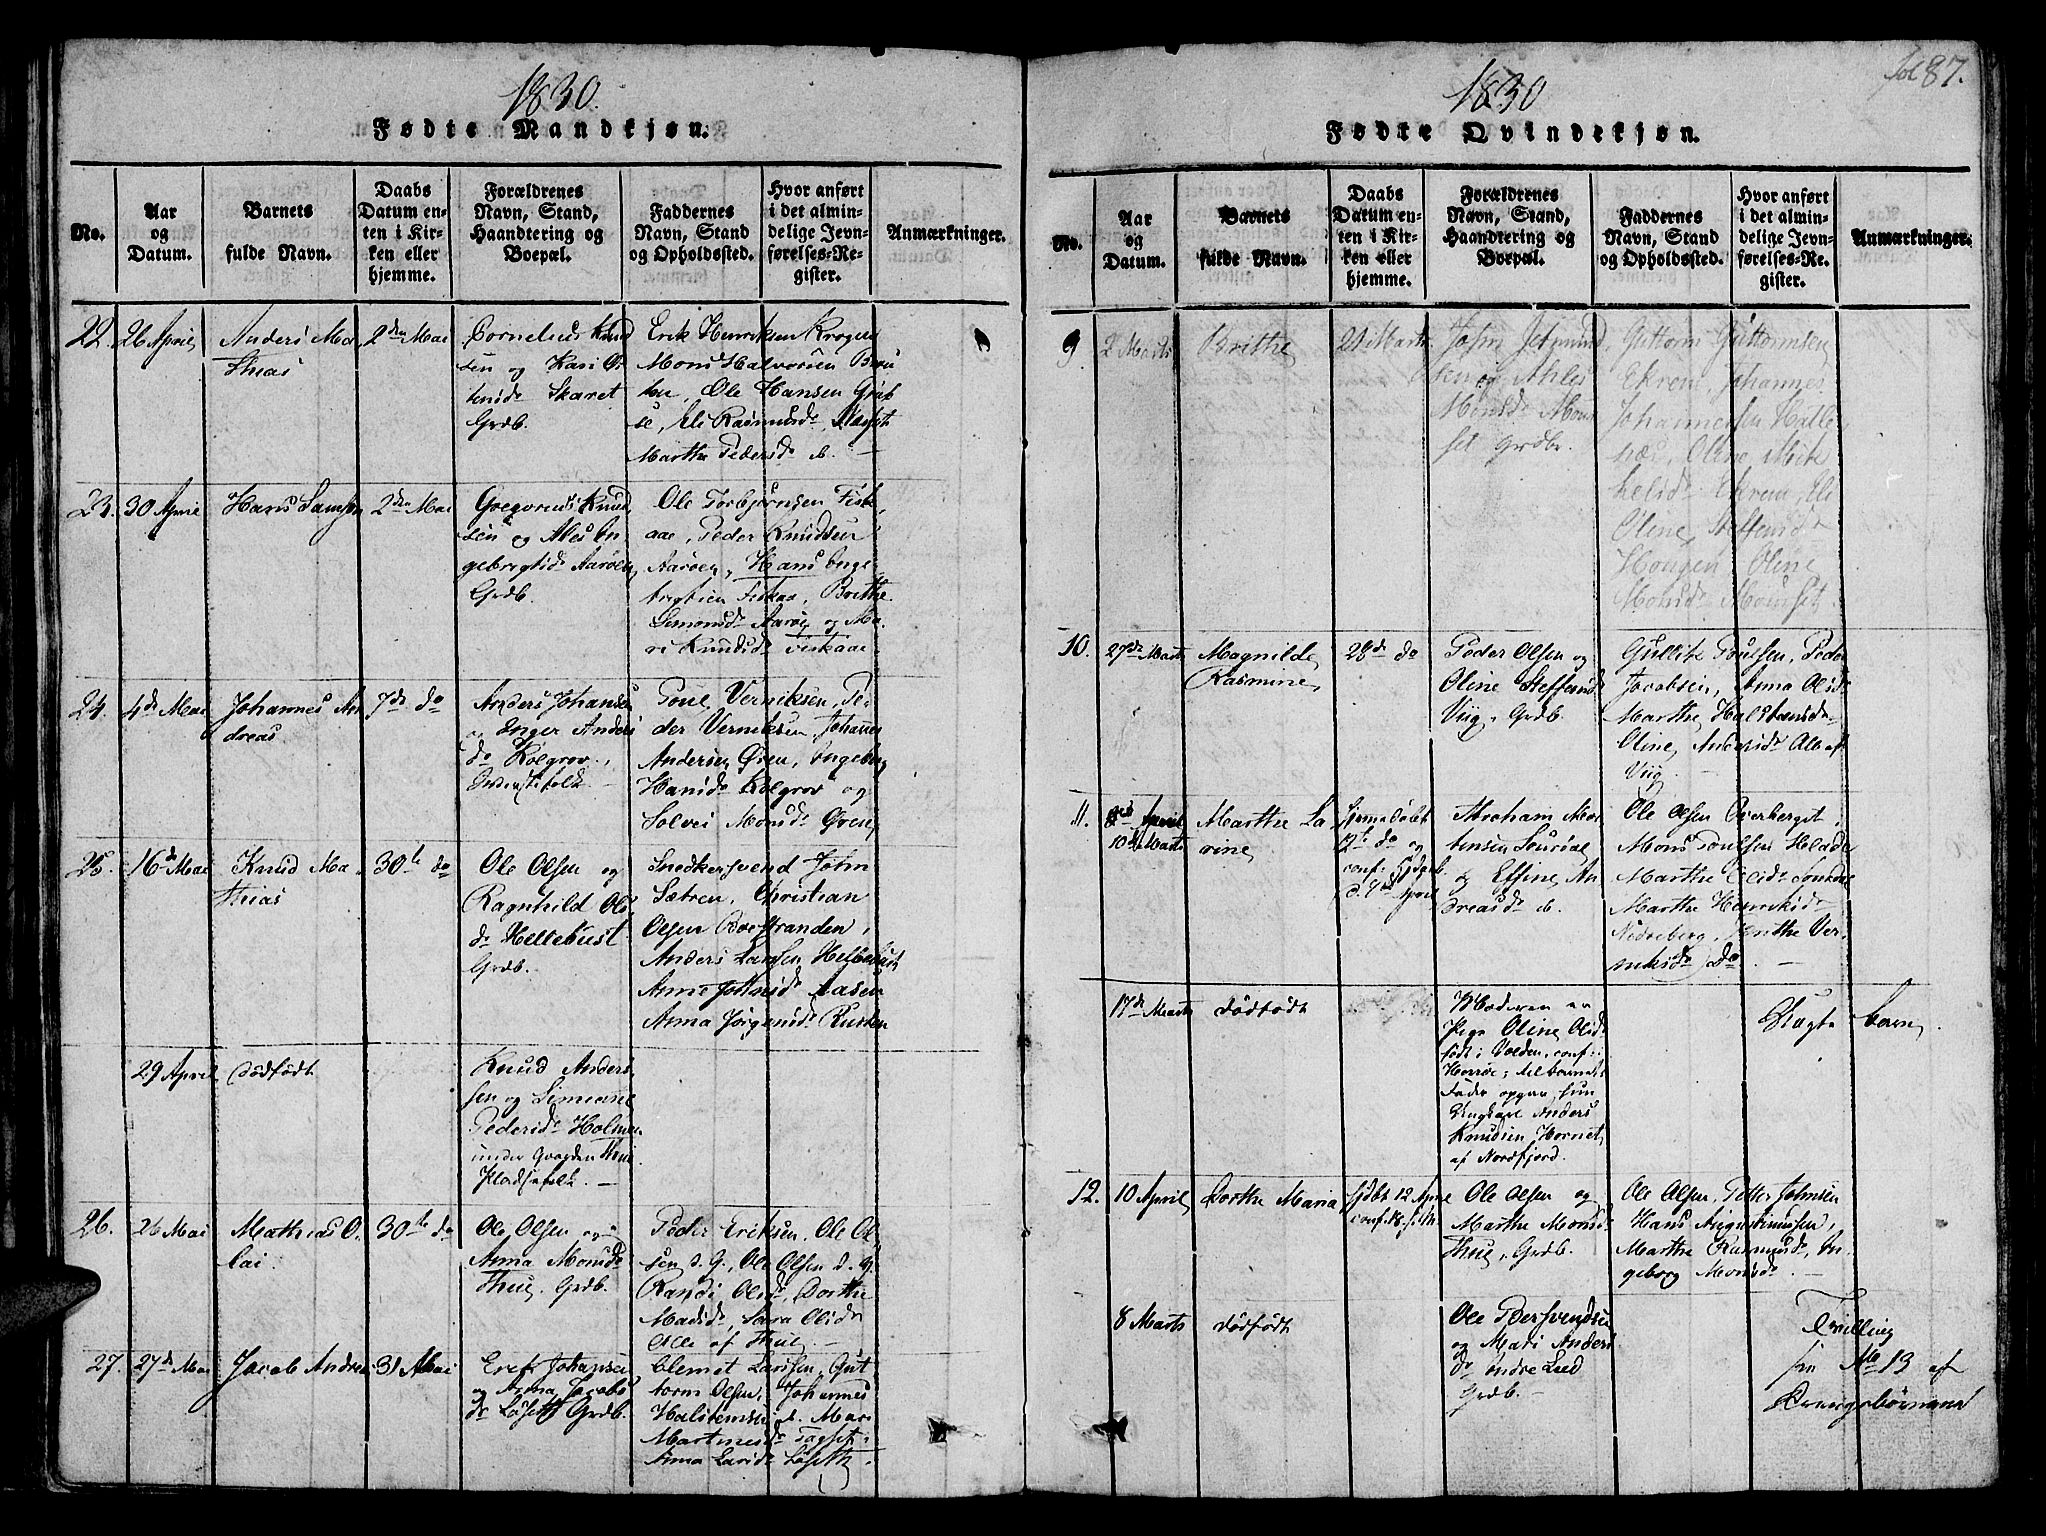 1830.
Fødte Mandkjøn.
No.
Aar
og
Datum.
Barnets
fulde Navn.
Daabs
Datum en-
ten i Kir-
ken eller
hjemme.
Forældrenes
Navn, Stand,
Haandtering og
Boepæl.
Faddernes
Navn, Stand
og Opholdssted.
Hvor anført
i det almin-
delige Jevn-
førelses-Re-
gister.
Anmærkninger.
22.
26 April
Anders Ma
thias
2den Mai
Cornelius Knud
sen og Kari
Skaret
Grdb.
Erik Henriksen Krogen
Mons Halvorsen
Ole Hansen
Rasmusd.
Marthe Pedersd. ib.
23.
30 April
Hans Samson
2den Mai
Gregorius Knud
sen og Ales In
gebrigtsd. Aarøen
Grdb.
Ole Torbjørnsen Fisk
aae, Peder Knudsen
Aarøen, Hans Inge
brigtsen Fiskaa, Brithe
Simonsd. Aarøe og Ma
ri Knudsd. Fiskaae
24.
4de Mai
Johannes An
dreas
7de do
Anders Johansen
og Inger Anders
d. Kolgrov,
Inderstefolk
Poul Verniksen, Pe
der Verniksen, Johannes
Andersen Øren, Ingeborg
Hansd. Kolgrov og
Solvei Monsd. Øren
25.
16de Mai
Knud Ma
thias
30te do
Ole Olsen og
Ragnhild Ols
d. Hellebust
Grdb.
Snedkersvend John
Sætren, Christian
Olsen Boestranden,
Anders Larsen Hellebust
Anne Johnsd. Aasen
Anna Jørgensd. Rusten
29 April
dødfødt
Knud Anders
sen og Simeane
Pedersd. Holmen
under Gaarden Thue
Pladsefolk.
26.
26 Mai
Mathias O
lai
30te do
Ole Olsen og
Anna Monsd.
Thue. Grdb.
Peder Eriksen, Ole Ol
sen d. g., Ole Olsen d. y.
Randi Olsd., Dorthe
Madsd., Sara Olsd.
Alle af Thue
27.
27de Mai
Jacob Andrea
31 Mai
Erik Johansen
og Anna Jacobs
d. Løseth Grdb.
Clemet Larssen, Gut
torm Olsen, Johannes
Halstensen ib. Mari
Martinesd.
Anna Larsd. Løseth.
fol 87.
1830
Fødte Qvindekjøn.
No.
Aar
og
Datum.
Barnets
fulde Navn.
Daabs
Datum en-
ten i Kir-
ken eller
hjemme.
Forældrenes
Navn, Stand,
Haandtering og
Boepæl.
Faddernes
Navn, Stand
og Opholdssted.
Hvor anført
i det almin-
delige Jevn-
førelses-Re-
gister.
Anmærkninger.
9
2 Marts
Brithe
21 Marts
John Jetmund
sen og Ahles
Monsd. Mom
set Grdbr.
Guttorm Guttormsen
Ekrene, Johannes
Johannessen Halle
næs, Oline Mik
kelsd. Ekrene,
Oline Steffensd.
Hougen, Oline
Monsd. Momset
10.
27de Marts
Magnilde
Rasmine
28de do
Peder Olsen og
Oline Steffensd.
Viig, Grdb.
Gullik Poulsen, Peder
Jacobsen, Anna Olsd.
Marthe Halstensd.
Oline Andersd. Alle af
Viig
11.
April
10de Marts
Marthe La
rine
hjemmedøbt
12te do og
conf. i Kirken
d. April
Abraham Mor
tensen Sourdal
og Essine An
dreasd. ib.
Ole Olsen Overberget,
Mons Poulsen
Marthe Olsd. Sourdal
Marthe Henriksd.
Nedreberg, Brithe Ver
niksd. do.
17de Marts
dødfødt
Moderen en
Pige Oline Olsd.
født i Volden, conf. i
Herrøe; til barnets
Fader opgav hun
Ungkarl Anders
Knudsen Hornet
af Nordfjord.
Uægte barn
12.
10 April
Dorthe Maria
hjdbt 12 April
conf. 18 s. M.
Ole Olsen og
Marthe Monsd.
Thue, Grdb.
Ole Olsen, Petter Johnsen
Hans Augustinussen,
Marthe Rasmusd., In
geborg Monsd.
8 Marts
dødfødt
Ole Pedersvendsen
og Mari Anders
d. Indre Lied
Grdb.
Tvilling
fra No 13 af
Drengebørnene